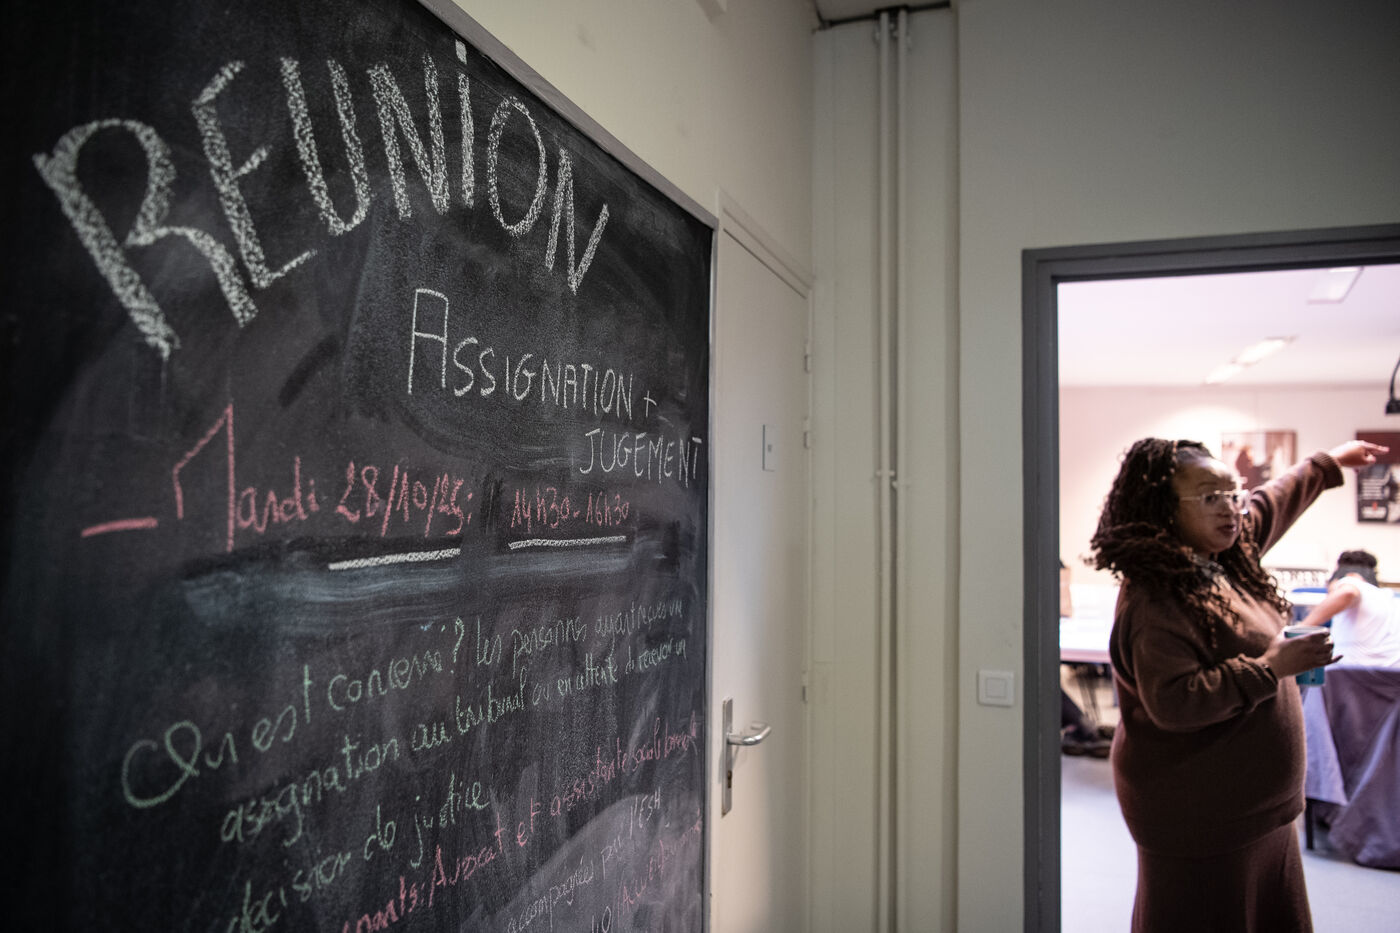 REUNION
ASSIGNATION +
JUGEMENT
- Mardi 28/10/25: 14h30-16h30
Qui est concerné? les personnes ayant reçues un
assignation au tribunal ou en attente de recevoir un
décision de justice
Avocat et assistante sociale
accompagnée par l'ESH